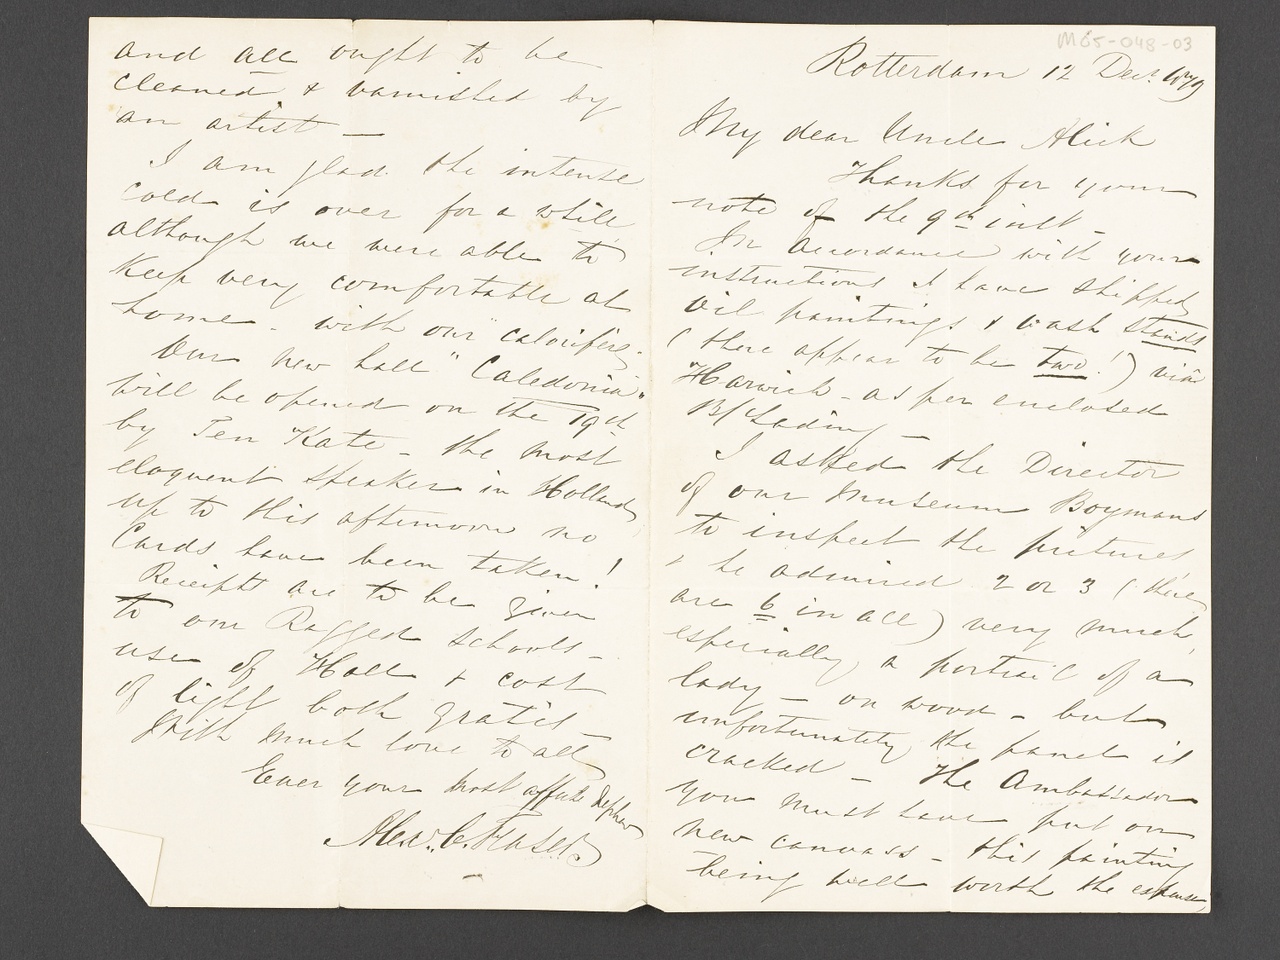 M65-048-03
Rotterdam 12 Decr. 1879
My dear Uncle Alick
Thanks for your
note of the 9th inst -
In accordance with your
instructions I have shipped
oil paintings & wash stands
(there appear to be two!) via
Harwich - as per enclosed
B/Lading -
I asked the Director
of our Museum Boymans
to inspect the pictures
& he admired 2 or 3 (there
are 6 in all) very much,
especially a portrait of a
lady - on wood - but
unfortunately the panel is
cracked - The Ambassador
you must have put on
new canvass - this painting
being well worth the expense,
and all ought to be
cleaned & varnished by
an artist -
I am glad the intense
cold is over for a while
although we were able to
keep very comfortable at
home - with our "calorifère".
Our new hall "Caledonia"
will be opened on the 19th
by Ten Kate - the most
eloquent speaker in Holland,
up to this afternoon no
Cards have been taken!
Receipts are to be given
to our Ragged Schools -
use of Hall & cost
of light both gratis -
With much love to all
Ever your most affecte Nephew
Alexr. C. Fraser